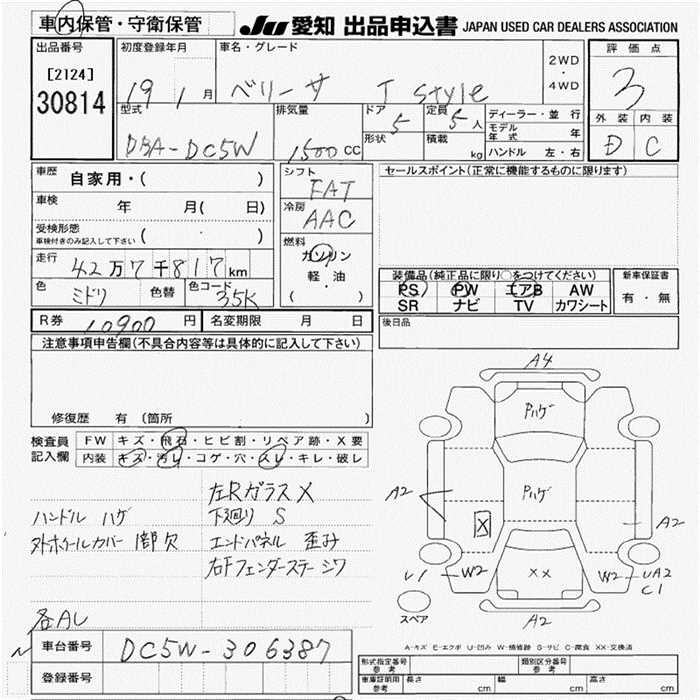 車内保管・守衛保管
JU 愛知 出品申込書 JAPAN USED CAR DEALERS ASSOCIATION
出品番号
[2124]
30814
初度登録年月
19 1 月
車名・グレード
ベリーサ T style
2WD
・
4WD
評価点
3
外装 内装
D C
型式
DBA-DC5W
排気量
1500 CC
ドア
5
定員
5 人
形状
積載
kg
ディーラー・並行
モデル年式 年
ハンドル 左・右
車歴
自家用・( )
車検
年 月( 日)
受検形態
車検付きのみ記入して下さい ( )
走行
42万7千817km
色
ミドリ
色替
色コード
35K
シフト
FAT
冷房
AAC
燃料
ガソリン
軽・油
( )
セールスポイント(正常に機能するものに限ります)
装備品(純正品に限り○をつけてください)
PS PW エアB AW
SR ナビ TV カワシート
新車保証書
有・無
後日品
R券 10900 円
名変期限 月 日
注意事項申告欄(不具合内容等は具体的に記入して下さい)
修復歴 有 (箇所 )
検査員記入欄
FW キズ・飛石・ヒビ割・リペア跡・X要
内装 キズ・汚レ・コゲ・穴・スレ・キレ・破レ
左Rガラス X
ハンドル ハゲ
下廻り S
外ホイールカバー 1部欠
エンドパネル 歪み
右Fフェンダーステー シワ
各AL
A4
Pハゲ
Pハゲ
A2
X
A2
W2
XX
W2
UA2
C1
スペア
A2
A-キズ E-エクボ U-凹み W-補修跡 S-サビ C-腐食 XX-交換済
車台番号
DC5W-306387
登録番号
形式指定番号
参考
類別区分番号
参考
車庫証明用
参考
長さ cm
幅 cm
高さ cm